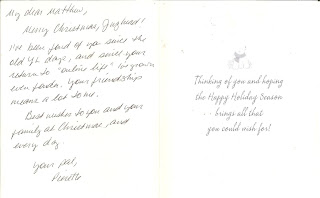 My dear Matthew,
Merry Christmas,
I've been fond of you since the
old YL days, and since your
return to "online life", I've grown
even fonder. Your friendship
means a lot to me.
Best wishes to you and your
family at Christmas, and
every day
Your pal,
Thinking of you and hoping
the Happy Holiday Season
brings all that
you could wish for!